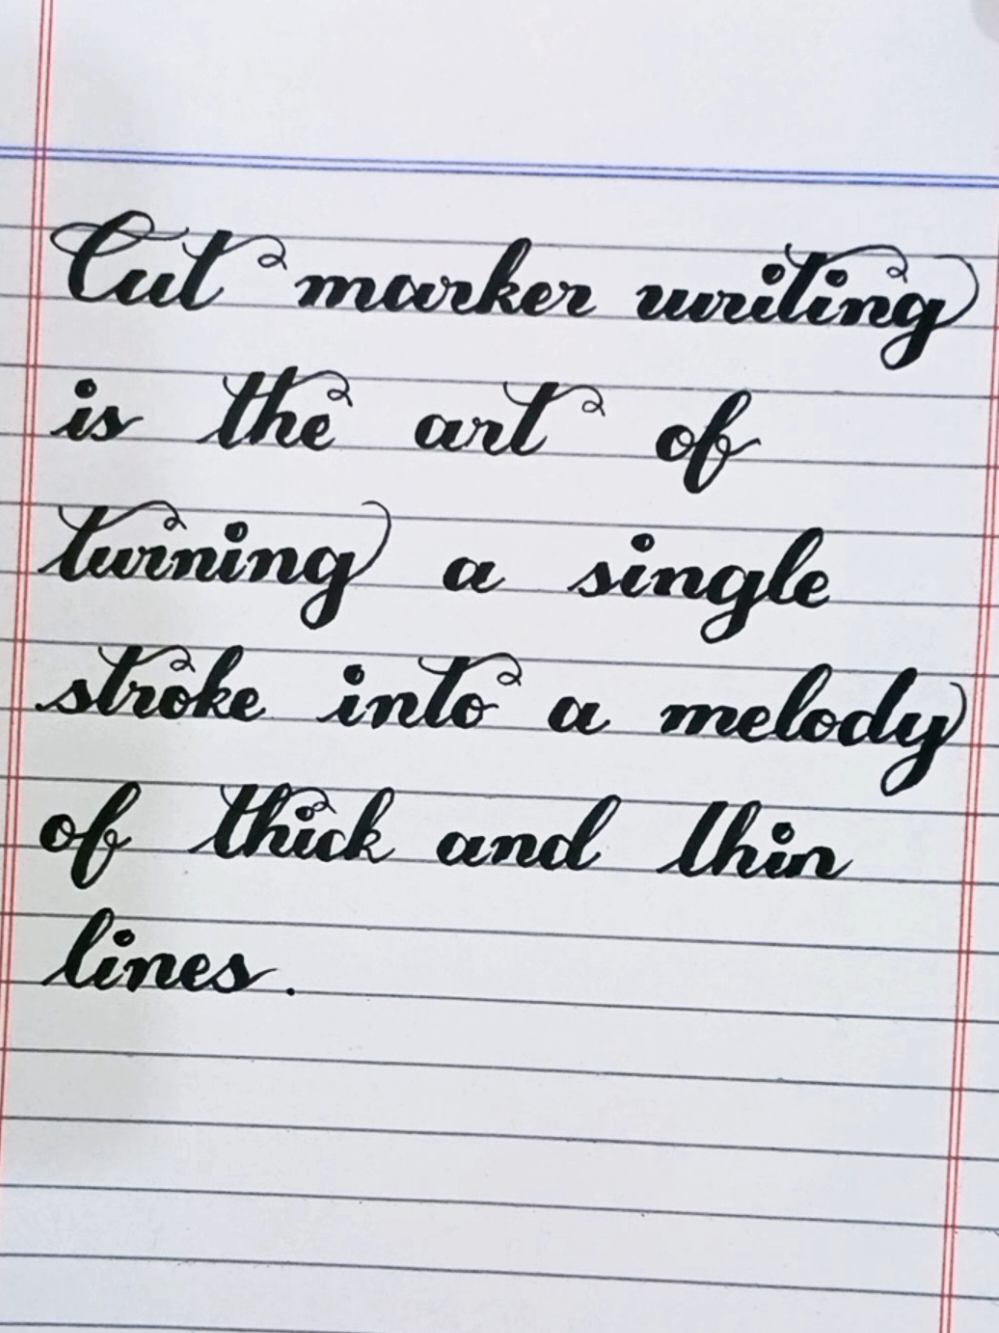 Cut marker writing
is the art of
turning a single
stroke into a melody
of thick and thin
lines.